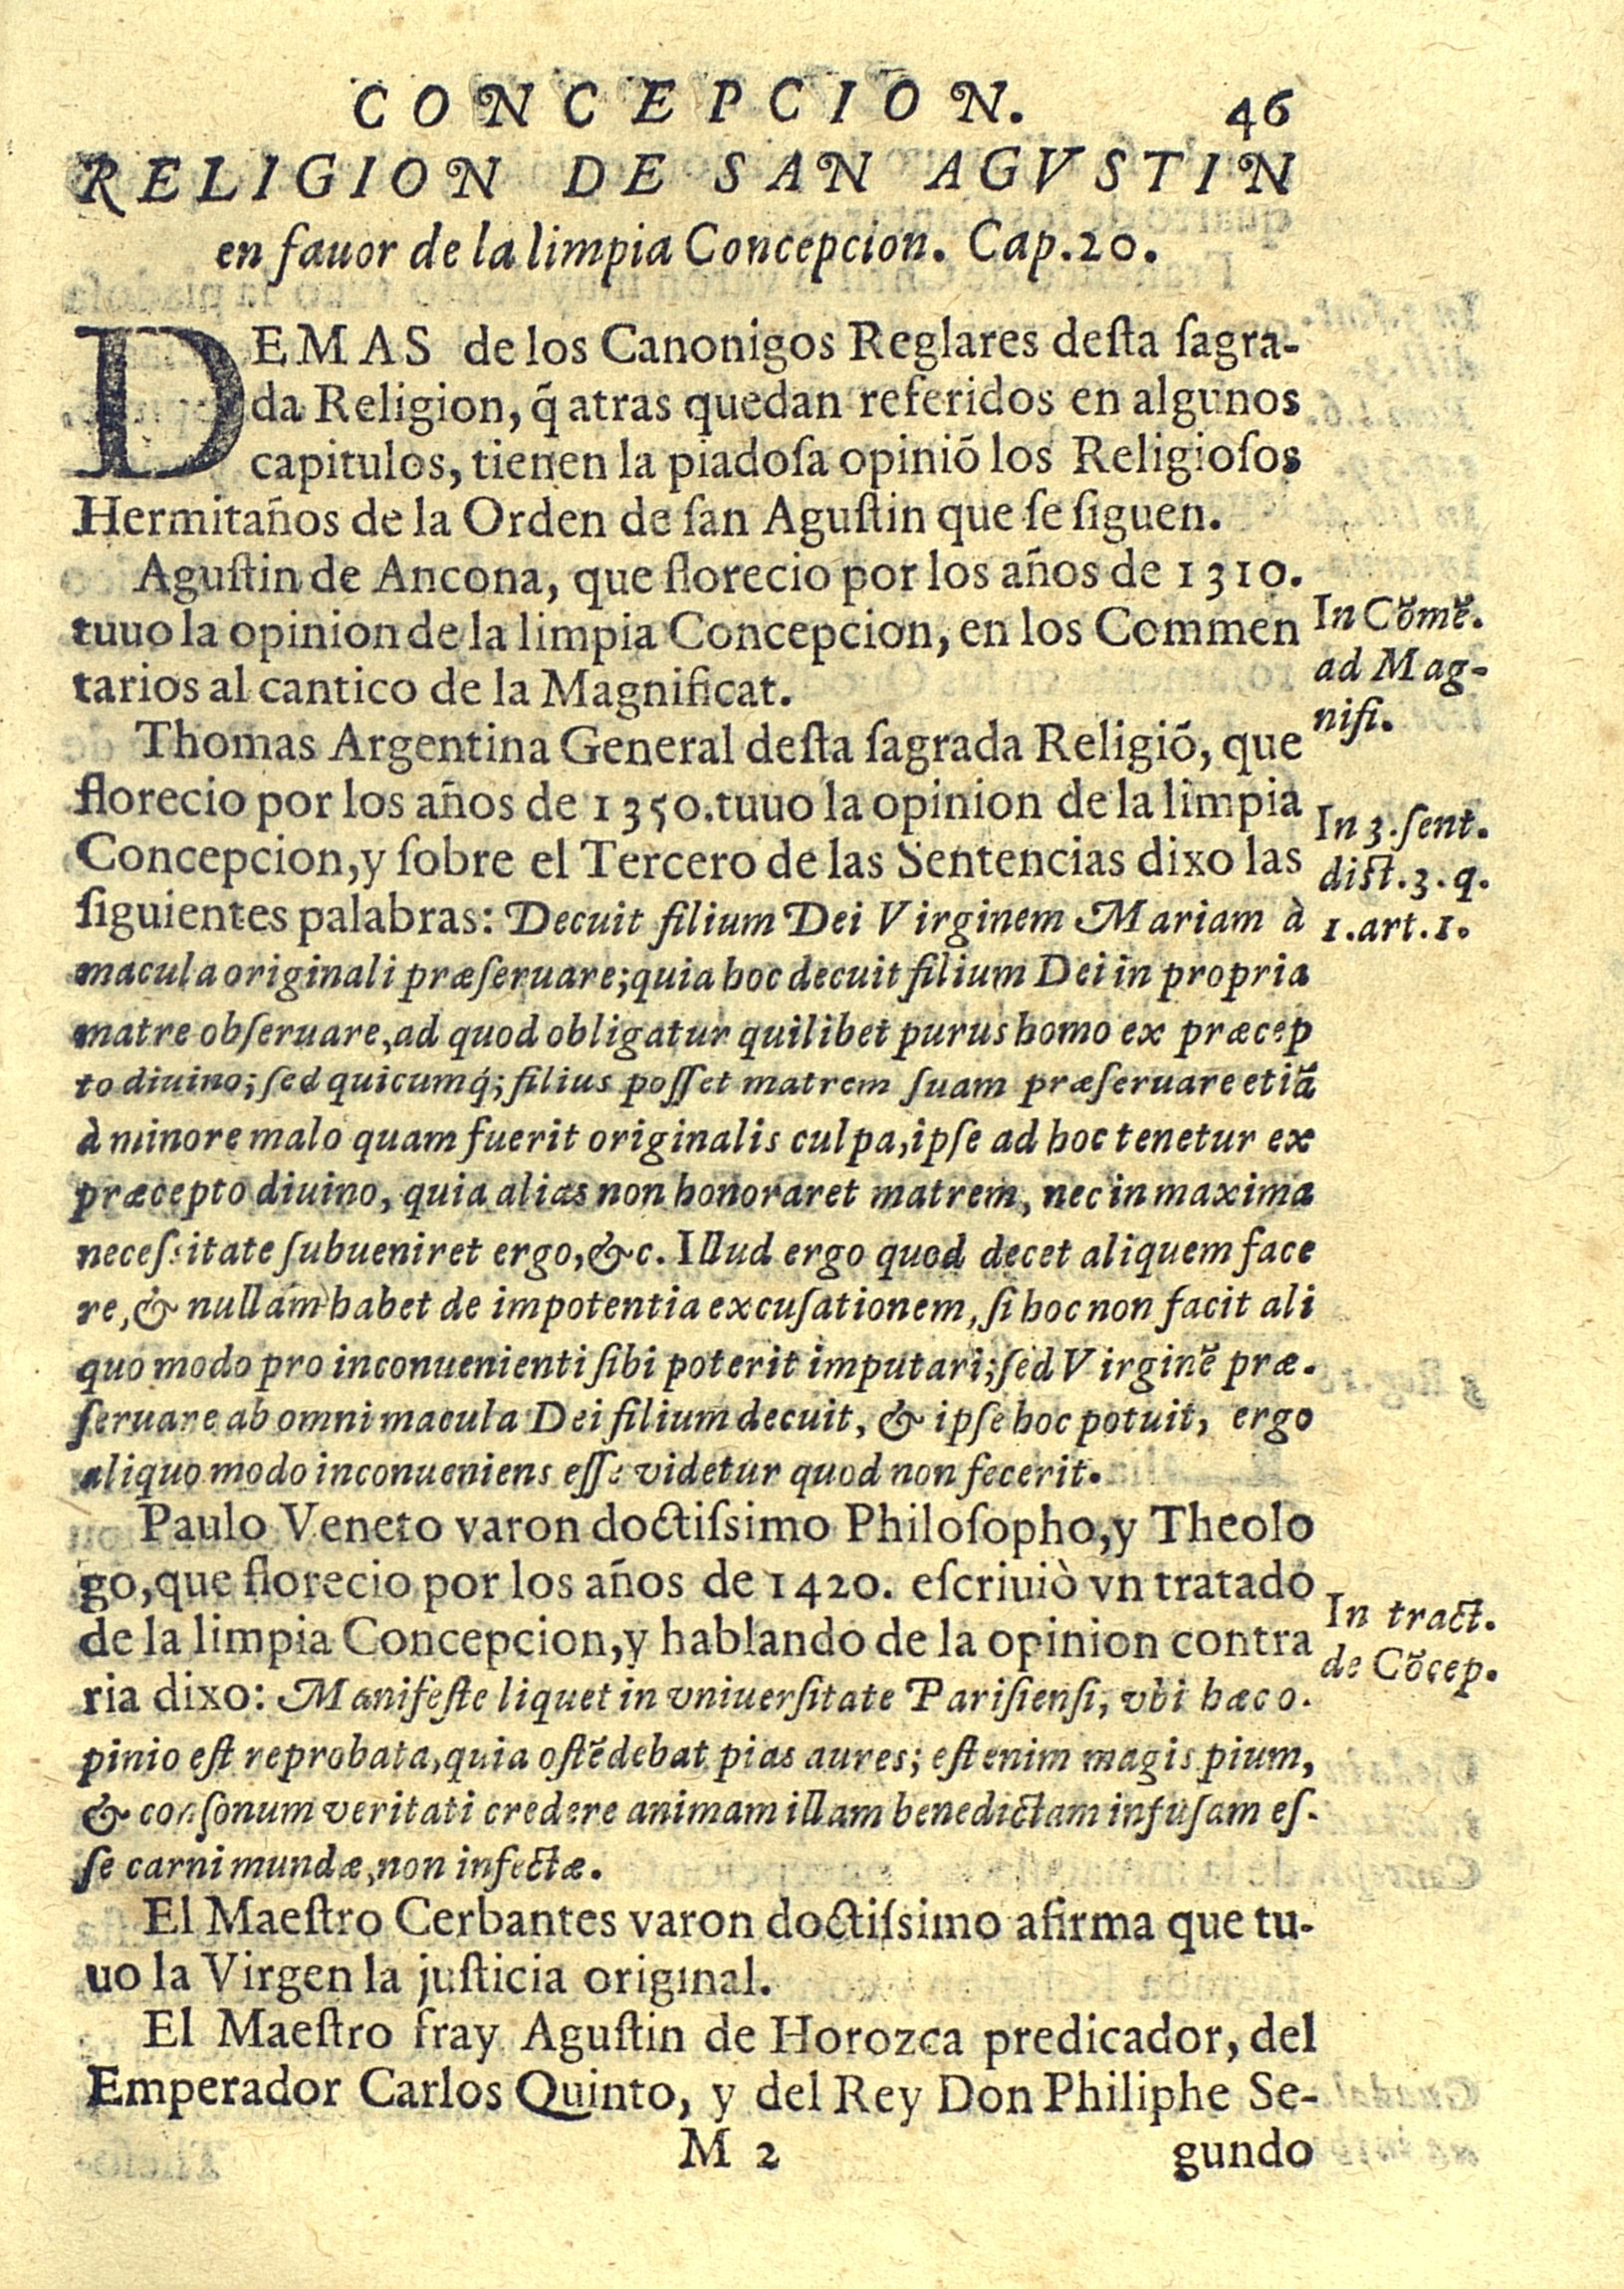 CONCEPCION. 46
RELIGION DE SAN AGVSTIN
en fauor de la limpia Concepcion. Cap.20.
DEMAS de los Canonigos Reglares desta sagra-
da Religion, q̃ atras quedan referidos en algunos
capitulos, tienen la piadosa opiniõ los Religiosos
Hermitaños de la Orden de san Agustin que se siguen.
Agustin de Ancona, que florecio por los años de 1310.
tuuo la opinion de la limpia Concepcion, en los Commen
tarios al cantico de la Magnificat.
In Cõmẽ.
ad Mag-
nifi.
Thomas Argentina General desta sagrada Religiõ, que
florecio por los años de 1350. tuuo la opinion de la limpia
Concepcion, y sobre el Tercero de las Sentencias dixo las
siguientes palabras: Decuit filium Dei Virginem Mariam à
macula originali præseruare; quia hoc decuit filium Dei in propria
matre obseruare, ad quod obligatur quilibet purus homo ex præcep
to diuino; sed quicumq́; filius posset matrem suam præseruare etiã
à minore malo quam fuerit originalis culpa, ipse ad hoc tenetur ex
præcepto diuino, quia alias non honoraret matrem, nec in maxima
necessitate subueniret ergo, &c. Illud ergo quod decet aliquem face
re, & nullam habet de impotentia excusationem, si hoc non facit ali
quo modo pro inconuenienti sibi poterit imputari; sed Virginẽ præ-
seruare ab omni macula Dei filium decuit, & ipse hoc potuit, ergo
aliquo modo inconueniens esse videtur quod non fecerit.
In 3. sent.
dist. 3. q.
1. art. 1.
Paulo Veneto varon doctissimo Philosopho, y Theolo
go, que florecio por los años de 1420. escriuiò vn tratado
de la limpia Concepcion, y hablando de la opinion contra
ria dixo: Manifeste liquet in vniuersitate Parisiensi, vbi hæc o-
pinio est reprobata, quia ostẽdebat pias aures; est enim magis pium,
& consonum veritati credere animam illam benedictam infusam es-
se carni mundæ, non infectæ.
In tract.
de Cõcep.
El Maestro Cerbantes varon doctissimo afirma que tu-
uo la Virgen la justicia original.
El Maestro fray Agustin de Horozca predicador, del
Emperador Carlos Quinto, y del Rey Don Philiphe Se-
M 2 gundo